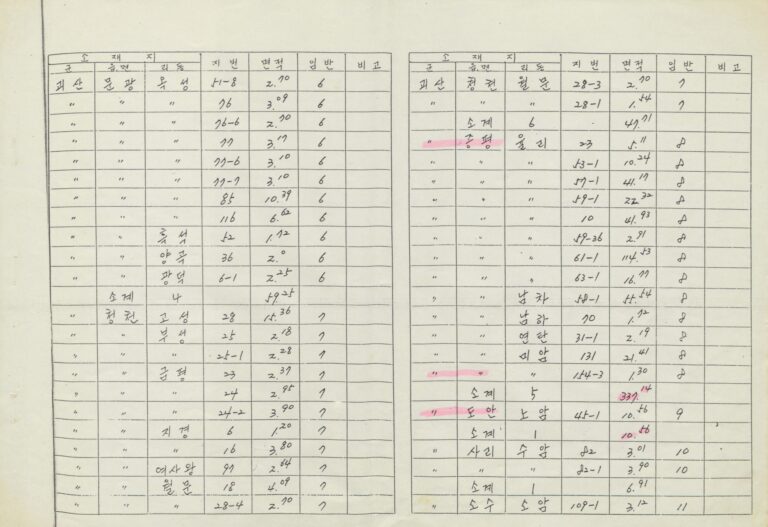 소재지 지번 면적 임반 비고
군 읍.면 리.동
괴산 문광 옥성 51-8 2.70 6
〃 〃 〃 76 3.09 6
〃 〃 〃 76-6 2.70 6
〃 〃 〃 77 3.17 6
〃 〃 〃 77-6 3.10 6
〃 〃 〃 77-7 3.10 6
〃 〃 〃 85 10.39 6
〃 〃 〃 116 6.62 6
〃 〃 흑석 52 1.72 6
〃 〃 양곡 36 2.0 6
〃 〃 광덕 6-1 2.25 6
소계 4 59.25
〃 청천 고성 28 15.36 7
〃 〃 부성 25 2.18 7
〃 〃 〃 25-1 2.28 7
〃 〃 금평 23 2.37 7
〃 〃 〃 24 2.95 7
〃 〃 〃 24-2 3.90 7
〃 〃 지경 6 1.20 7
〃 〃 〃 16 3.80 7
〃 〃 여사왕 97 2.64 7
〃 〃 월문 18 4.09 7
〃 〃 〃 28-4 2.70 7
소재지 지번 면적 임반 비고
군 읍.면 리.동
괴산 청천 월문 28-3 2.70 7
〃 〃 〃 28-1 1.54 7
소계 6 47.71
〃 증평 율리 23 5.11 8
〃 〃 〃 53-1 10.24 8
〃 〃 〃 57-1 41.17 8
〃 〃 〃 59-1 22.32 8
〃 〃 〃 10 41.93 8
〃 〃 〃 59-36 2.91 8
〃 〃 〃 61-1 114.53 8
〃 〃 〃 63-1 16.77 8
〃 〃 남차 58-1 55.54 8
〃 〃 남하 70 1.72 8
〃 〃 연탄 31-1 2.19 8
〃 〃 미암 131 21.41 8
〃 〃 〃 154-3 1.30 8
소계 5 337.14
〃 도안 노암 45-1 10.56 9
소계 1 10.56
〃 사리 수암 82 3.01 10
〃 〃 〃 82-1 3.90 10
소계 1 6.91
〃 소수 소암 109-1 3.12 11